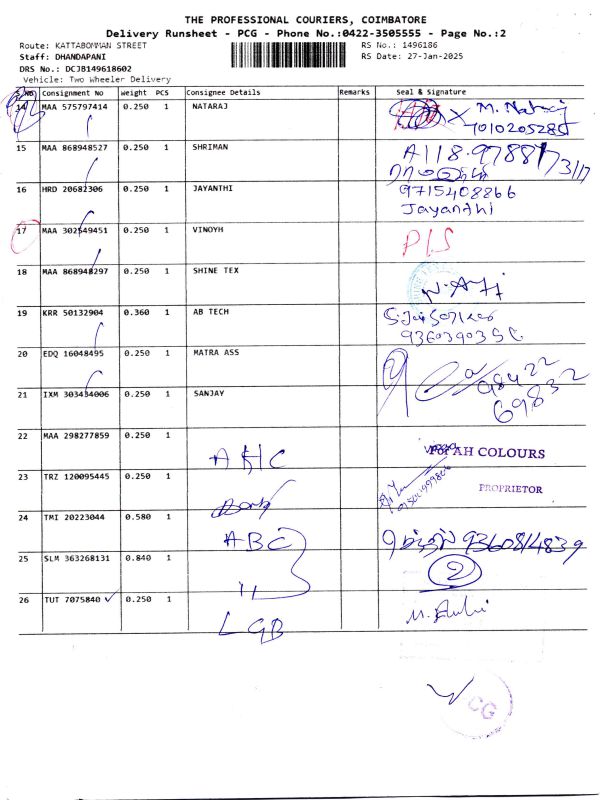 THE PROFESSIONAL COURIERS, COIMBATORE
Delivery Runsheet - PCG - Phone No.:0422-3505555 - Page No.:2
Route: KATTABOMMAN STREET
RS No.: 1496186
Staff: DHANDAPANI
RS Date: 27-Jan-2025
DRS No.: DCJB149618602
Vehicle: Two Wheeler Delivery
S.No Consignment No Weight PCS Consignee Details Remarks Seal & Signature
14 MAA 575797414 0.250 1 NATARAJ
7010205285
15 MAA 868948527 0.250 1 SHRIMAN
16 HRD 20682306 0.250 1 JAYANTHI 9715408866
Jayanthi
17 MAA 302549451 0.250 1 VINOYH P/S
18 MAA 868948297 0.250 1 SHINE TEX
19 KRR 50132904 0.360 1 AB TECH
20 EDQ 16048495 0.250 1 MATRA ASS
21 IXM 303434006 0.250 1 SANJAY 98422
69832
22 MAA 298277859 0.250 1 AHC COLOURS
23 TRZ 120095445 0.250 1 PROPRIETOR
24 TMI 20223044 0.580 1 ABC 9360814839
25 SLM 363268131 0.840 1 " 2
26 TUT 7075840 ✓ 0.250 1 LGB
CG